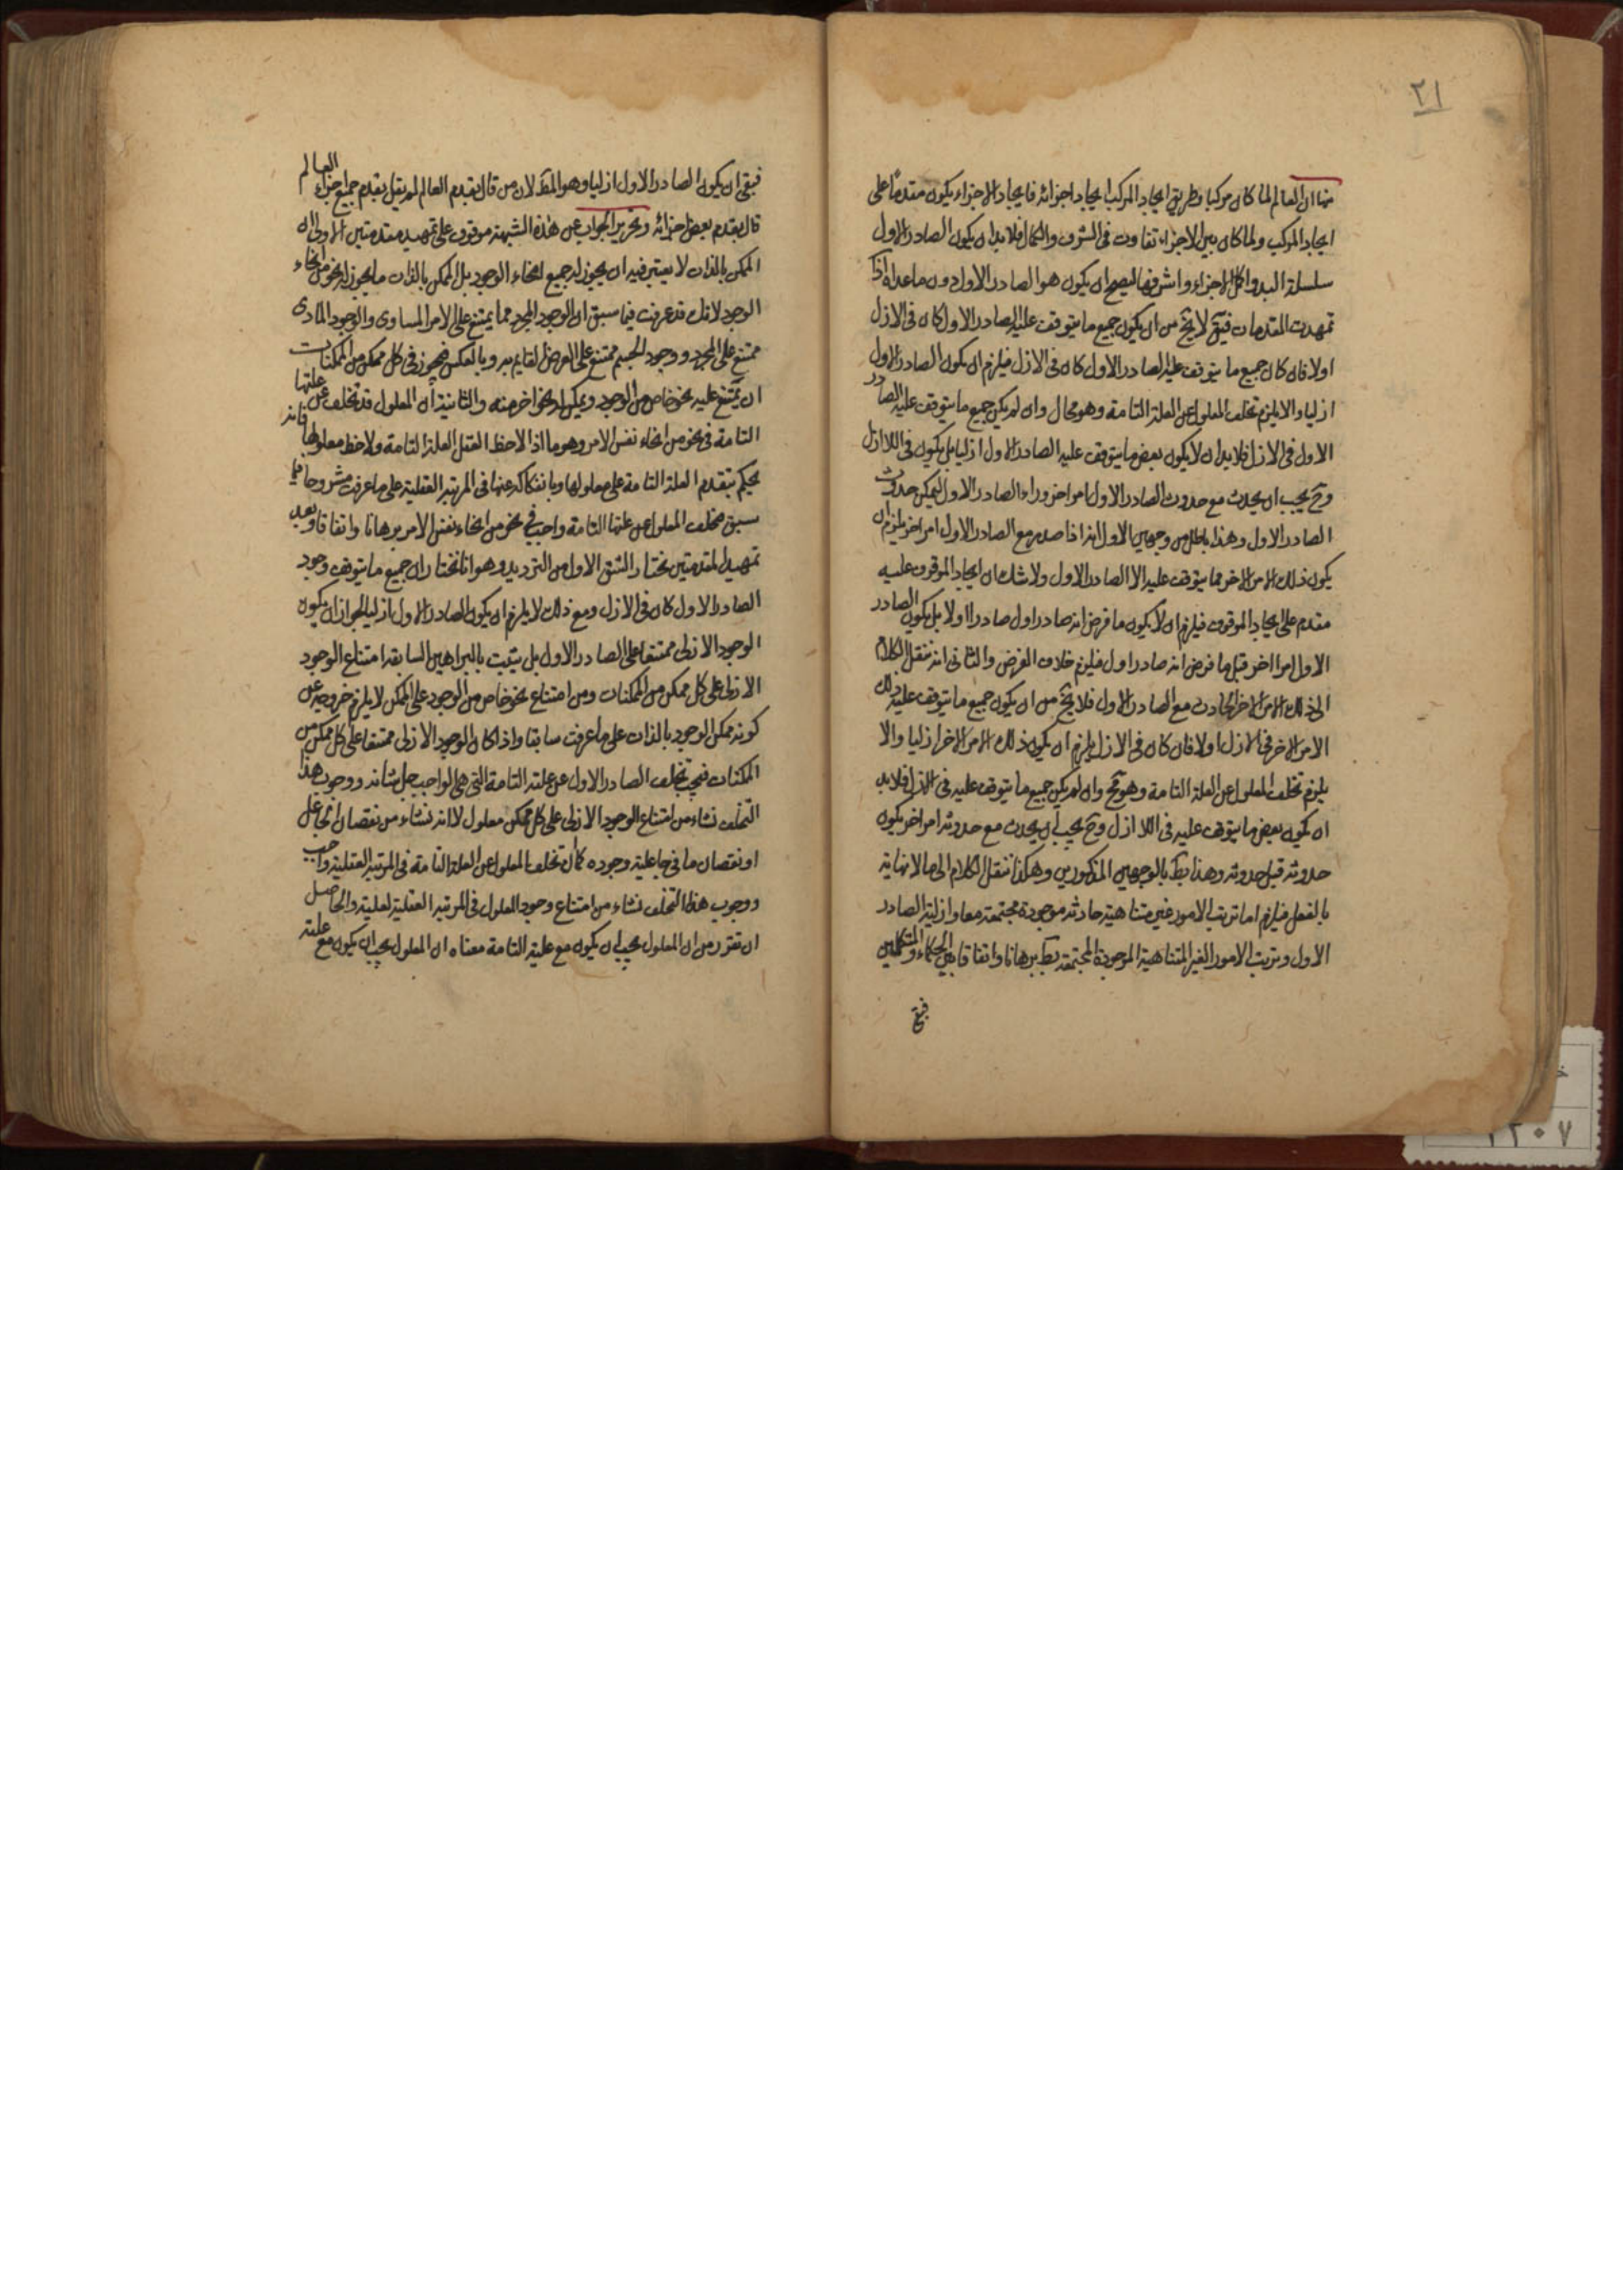 ٢١
منها ان العالم لما كان مركبا وطريق ايجاد المركب ايجاد اجزائه فايجاد الاجزاء يكون مقدما على
ايجاد المركب ولما كان بين الاجزاء تفاوت فى الشرف والكمال فلا بد ان يكون الصادر الاول
سلسلة البدو اكمل الاجزاء واشرفها ليصح ان يكون هو الصادر الاول دون ما عداه اذا
تمهدت المقدمات فيقى لا يخ من ان يكون جميع ما يتوقف عليه الصادر الاول كان فى الازل
اولا فان كان جميع ما يتوقف عليه الصادر الاول كان فى الازل فيلزم ان يكون الصادر الاول
ازليا والا يلزم تخلف المعلول عن العلة التامة وهو محال وان لم يكن جميع ما يتوقف عليه الصادر
الاول فى الازل فلا بد ان لا يكون بعض ما يتوقف عليه الصادر الاول ازليا بل يكون فى اللاازل
وح يجب ان يحدث مع حدوث الصادر الاول امر اخر وراء الصادر الاول ليمكن حدوث
الصادر الاول وهذا باطل من وجهين الاول انه اذا صدر مع الصادر الاول امر اخر يلزم ان
يكون ذلك الامر الاخر مما يتوقف عليه الا الصادر الاول ولا شك ان ايجاد الموقوف عليه
مقدم على ايجاد الموقوف فيلزم ان لا يكون ما فرض انه صادر اول صادرا اولا بل يكون الصادر
الاول امرا اخر قبل ما فرض انه صادر اول فيلزم خلاف الفرض والثانى انه ننقل الكلام
الى ذلك الامر الاخر الحادث مع الصادر الاول فلا يخ من ان يكون جميع ما يتوقف عليه ذلك
الامر الاخر فى الازل اولا فان كان فى الازل يلزم ان يكون ذلك الامر الاخر ازليا والا
يلزم تخلف المعلول عن العلة التامة وهو مح وان لم يكن جميع ما يتوقف عليه فى الازل فلا بد
ان يكون بعض ما يتوقف عليه فى اللاازل وح يجب ان يحدث مع حدوثه امر اخر يكون
حدوثه قبل حدوثه وهذا بط بالوجهين المذكورين وهكذا ننقل الكلام الى ما لا نهاية
بالفعل فيلزم اما ترتب الامور غير متناهية حادثه موجودة مجتمعة معا وازلية الصادر
الاول وترتب الامور الغير المتناهية الموجودة المجتمعة بط برهانا واتفاقا بين الحكماء والمتكلمين
فبقى
فبقى ان يكون الصادر الاول ازليا وهو المط لان من قال بقدم العالم لم يقل بقدم جميع اجزاء العالم
قال بقدم بعض اجزائه وتحرير الجواب عن هذه الشبهة موقوف على تمهيد مقدمتين الاولى ان
الممكن بالذات لا يعتبر فيه ان يجوز له جميع انحاء الوجود بل الممكن بالذات ما يجوز له نحو من انحاء
الوجود لانك قد عرفت فيما سبق ان الوجود المجرد مما يمتنع على الامر المساوى والوجود المادى
ممتنع على المجرد ووجود الجسم ممتنع على العرض القايم به وبالعكس فيجوز فى كل ممكن من الممكنات
ان يمتنع عليه نحو خاص من الوجود ويمكن له نحو اخر منه والثانية ان المعلول قد تخلف عن علتها
التامة فى نحو من انحاء نفس الامر وهو ما اذا لاحظ العقل العلة التامة ولاحظ معلولها فانه
يحكم بتقدم العلة التامة على معلولها وبانفكاكه عنها فى المرتبه العقلية على ما عرفت مشروحا فيما
سبق فتخلف المعلول عن علتها التامة واجب فى نحو من انحاء نفس الامر برهانا واتفاقا وبعد
تمهيد المقدمتين نختار الشق الاول من الترديد وهو انا نختار ان جميع ما يتوقف وجود
الصادر الاول كان فى الازل ومع ذلك لا يلزم ان يكون الصادر الاول ازليا لجواز ان يكون
الوجود الازلى ممتنعا على الصادر الاول بل يثبت بالبراهين السابقه امتناع الوجود
الازلى على كل ممكن من الممكنات ومن امتناع نحو خاص من الوجود على الممكن لا يلزم خروجه عن
كونه ممكن الوجود بالذات على ما عرفت سابقا واذا كان الوجود الازلى ممتنعا على كل ممكن من
الممكنات فيجب تخلف الصادر الاول عن علته التامة التى هى الواجب جل شانه ووجوب هذا
التخلف نشاء من امتناع الوجود الازلى على كل ممكن معلول لا انه نشاء من نقصان الجاعل
او نقصان ما فى جاعلية وجوده كما ان تخلف المعلول عن العلة التامة فى المرتبه العقلية واجب
ووجوب هذا التخلف نشاء من امتناع وجود المعلول فى المرتبه العقلية لعلية والحاصل
ان تقرر من ان المعلول يجب ان يكون مع علية التامة معناه ان المعلول يجب ان يكون مع علته